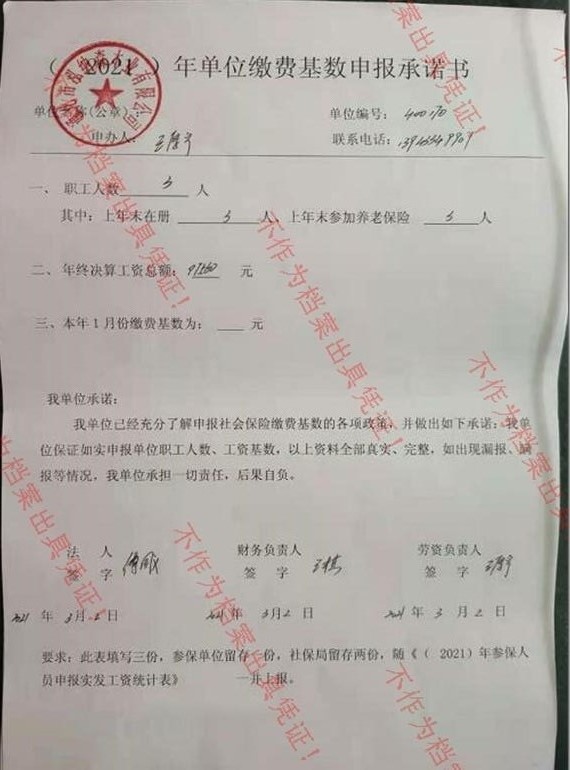 （ 2021 ）年单位缴费基数申报承诺书
单位名称(公章)： 单位编号：400170
申办人： 联系电话：
一、 职工人数 3 人
其中：上年末在册 3 人，上年末参加养老保险 3 人
二、年终决算工资总额： 元
三、本年1月份缴费基数为： 元
我单位承诺：
我单位已经充分了解申报社会保险缴费基数的各项政策，并做出如下承诺：我单
位保证如实申报单位职工人数、工资基数，以上资料全部真实、完整，如出现漏报、瞒
报等情况，我单位承担一切责任，后果自负。
法 人 财务负责人 劳资负责人
签 字 签 字 签 字
2021 年 3月 2 日 2021 年 3月 2 日 2021 年 3 月 2 日
要求：此表填写三份，参保单位留存一份，社保局留存两份，随《（ 2021）年参保人
员申报实发工资统计表》 一并上报。
不作为档案出具凭证！
不作为档案出具凭证！
不作为档案出具凭证！
不作为档案出具凭证！
不作为档案出具凭证！
不作为档案出具凭证！